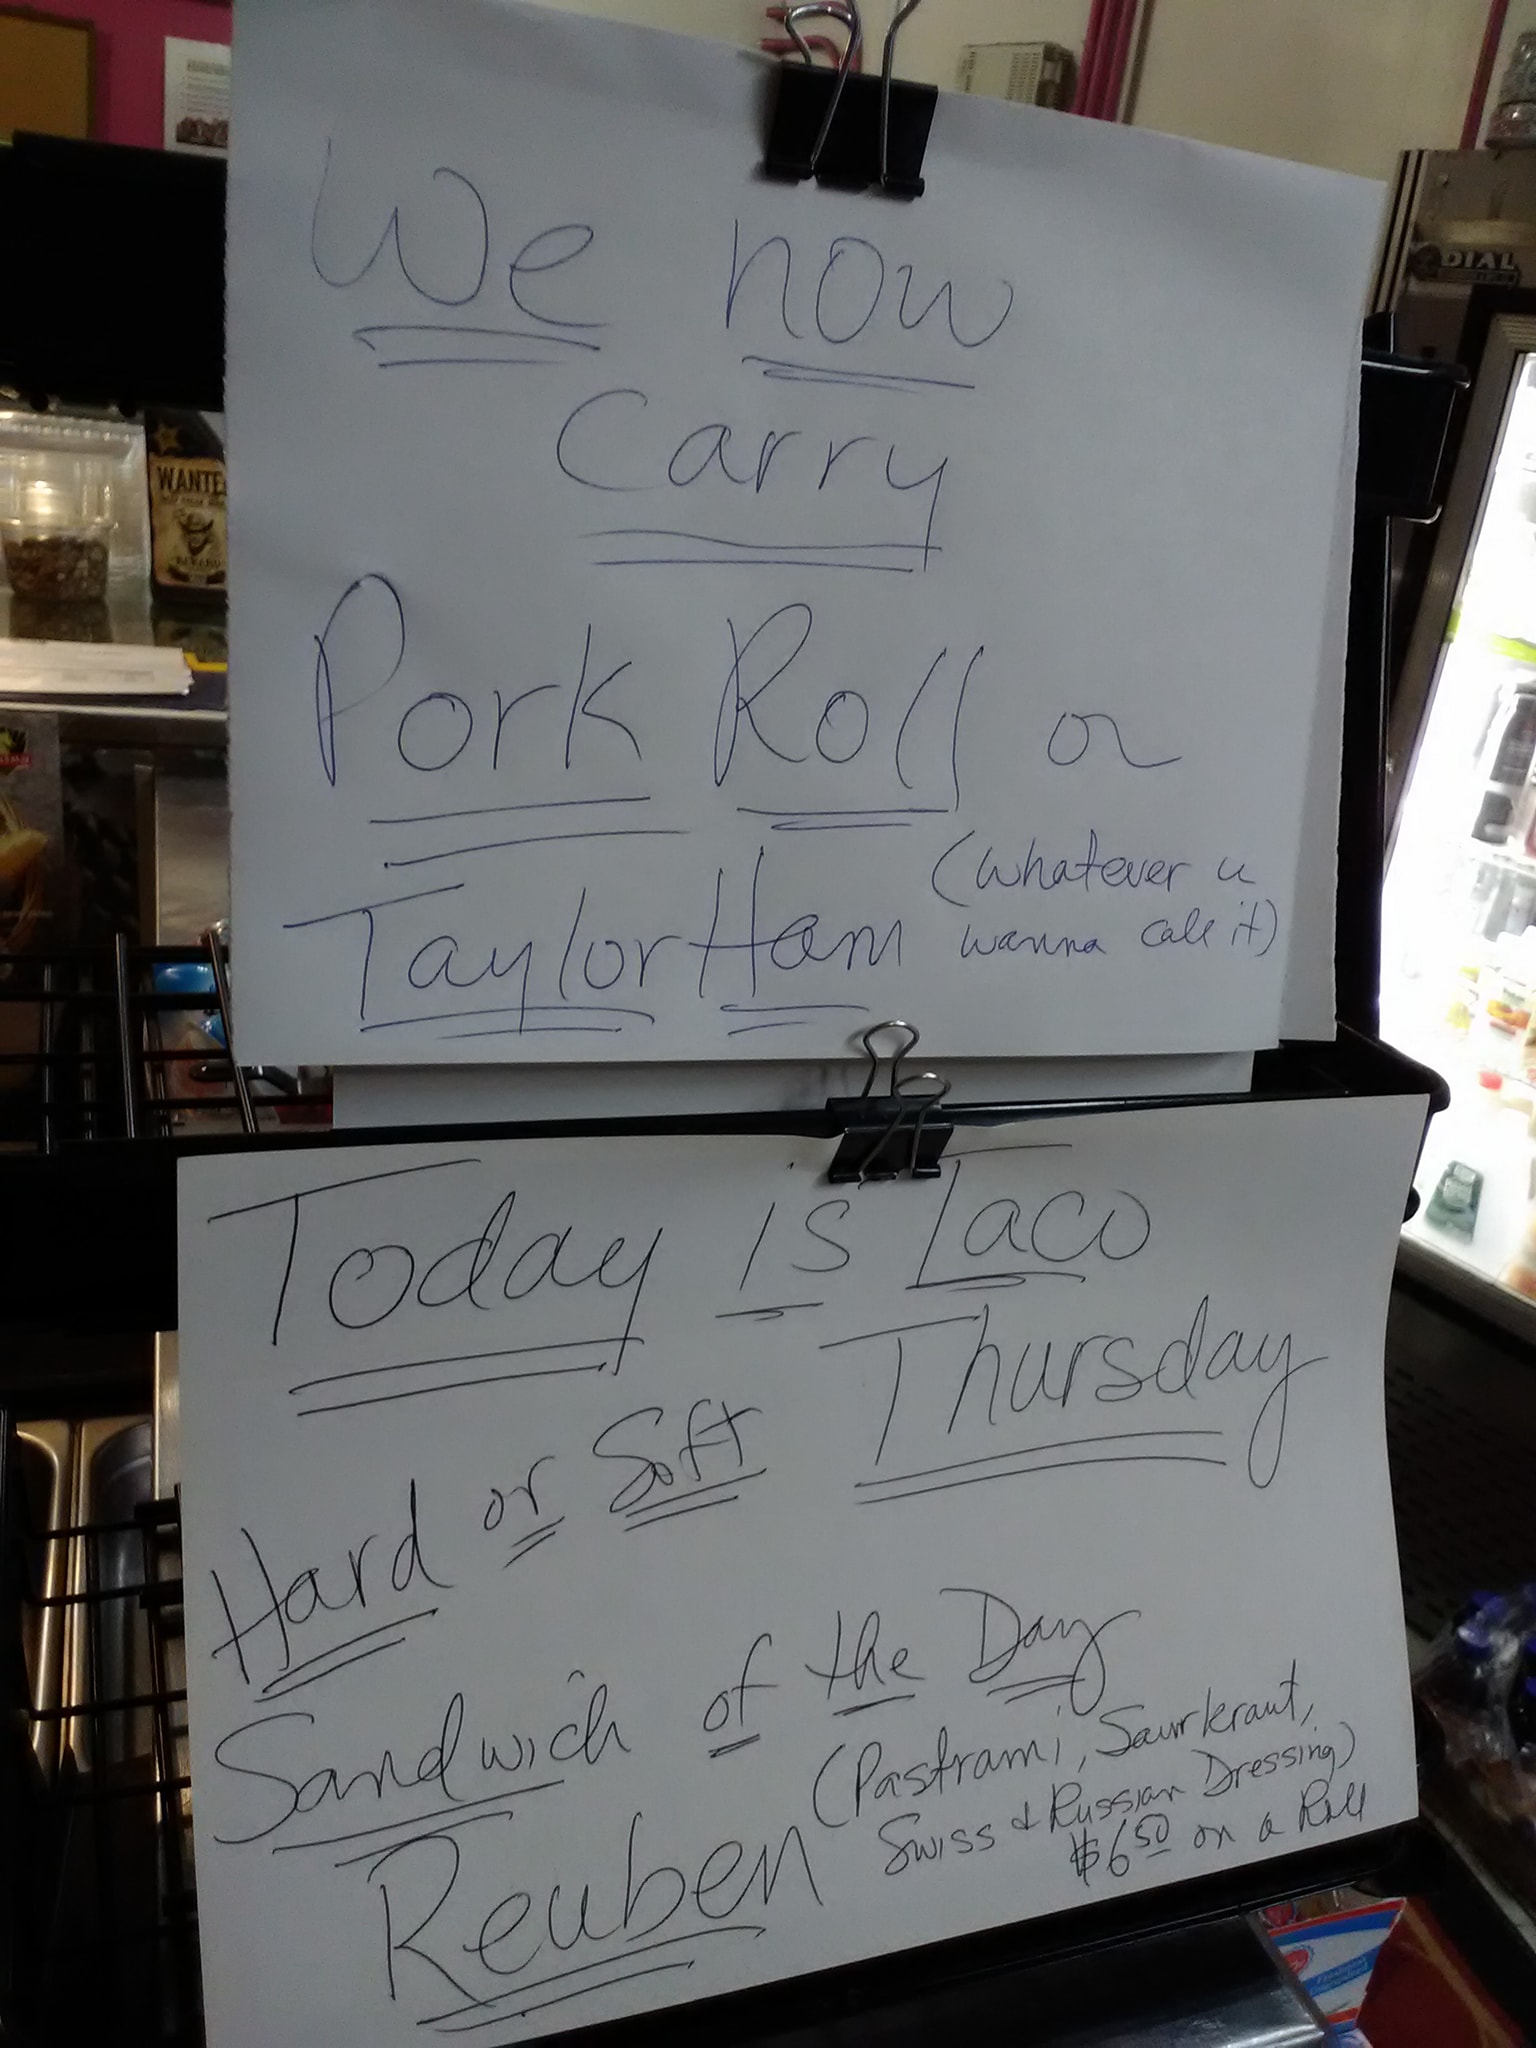 We now
Carry
Pork Roll or
Taylor Ham (Whatever u
wanna call it)
Today is Taco
Thursday
Hard or Soft
Sandwich of the Day
Reuben (Pastrami, Saurkraut,
Swiss & Russian Dressing)
$6.50 on a Roll
WANTE
REWARD
DIAL